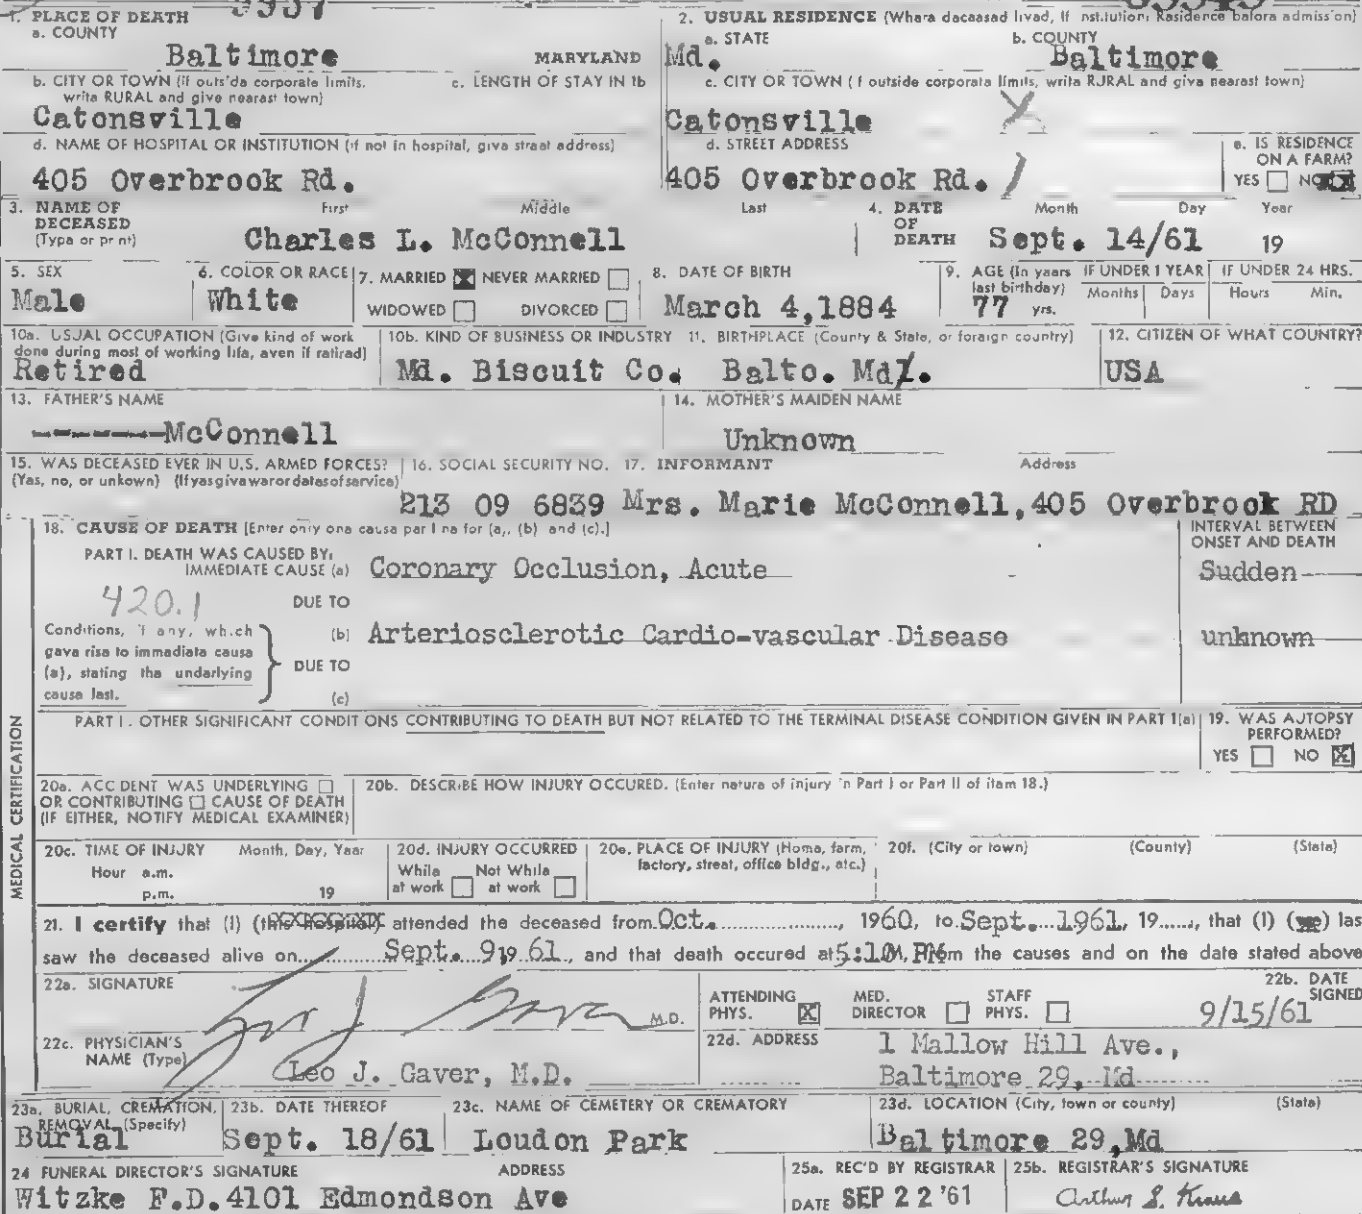 1. PLACE OF DEATH
a. COUNTY
Baltimore MARYLAND
b. CITY OR TOWN (if outside corporate limits, write RURAL and give nearest town) c. LENGTH OF STAY IN 1b
Catonsville
d. NAME OF HOSPITAL OR INSTITUTION (if not in hospital, give street address)
405 Overbrook Rd.
2. USUAL RESIDENCE (Where deceased lived, If institution: Residence before admission)
a. STATE b. COUNTY
Md. Baltimore
c. CITY OR TOWN (If outside corporate limits, write RURAL and give nearest town)
Catonsville
d. STREET ADDRESS
405 Overbrook Rd.
e. IS RESIDENCE ON A FARM?
YES NO
3. NAME OF DECEASED (Type or print) First Middle Last
Charles L. McConnell
4. DATE OF DEATH Month Day Year
Sept. 14/61 19
5. SEX
Male
6. COLOR OR RACE
White
7. MARRIED NEVER MARRIED
WIDOWED DIVORCED
8. DATE OF BIRTH
March 4,1884
9. AGE (In years last birthday)
77 yrs.
IF UNDER 1 YEAR IF UNDER 24 HRS.
Months Days Hours Min.
10a. USUAL OCCUPATION (Give kind of work done during most of working life, even if retired)
Retired
10b. KIND OF BUSINESS OR INDUSTRY
Md. Biscuit Co.
11. BIRTHPLACE (County & State, or foreign country)
Balto. Md.
12. CITIZEN OF WHAT COUNTRY?
USA
13. FATHER'S NAME
McConnell
14. MOTHER'S MAIDEN NAME
Unknown
15. WAS DECEASED EVER IN U.S. ARMED FORCES?
(Yes, no, or unkown) (If yes give war or dates of service)
16. SOCIAL SECURITY NO.
213 09 6839
17. INFORMANT Address
Mrs. Marie McConnell,405 Overbrook RD
18. CAUSE OF DEATH [Enter only one cause per line for (a), (b) and (c).]
INTERVAL BETWEEN ONSET AND DEATH
PART I. DEATH WAS CAUSED BY:
IMMEDIATE CAUSE (a) Coronary Occlusion, Acute Sudden
420.1 DUE TO
Conditions, if any, which gave rise to immediate cause (a), stating the underlying cause last.
(b) Arteriosclerotic Cardio-vascular Disease unknown
DUE TO
(c)
MEDICAL CERTIFICATION
PART I. OTHER SIGNIFICANT CONDITIONS CONTRIBUTING TO DEATH BUT NOT RELATED TO THE TERMINAL DISEASE CONDITION GIVEN IN PART 1(a)
19. WAS AUTOPSY PERFORMED?
YES NO X
20a. ACCIDENT WAS UNDERLYING
OR CONTRIBUTING CAUSE OF DEATH
(IF EITHER, NOTIFY MEDICAL EXAMINER)
20b. DESCRIBE HOW INJURY OCCURED. (Enter nature of injury in Part I or Part II of item 18.)
20c. TIME OF INJURY Month, Day, Year
Hour a.m.
p.m. 19
20d. INJURY OCCURRED
While at work Not While at work
20e. PLACE OF INJURY (Home, farm, factory, street, office bldg., etc.)
20f. (City or town) (County) (State)
21. I certify that (I) (this hospital) attended the deceased from Oct. 1960, to Sept. 1961, 19....., that (I) (we) las
saw the deceased alive on Sept. 9 19 61, and that death occured at 5:10 PM from the causes and on the date stated above
22a. SIGNATURE
M.D.
ATTENDING PHYS. X MED. DIRECTOR STAFF PHYS.
22b. DATE SIGNED
9/15/61
22c. PHYSICIAN'S NAME (Type)
Leo J. Gaver, M.D.
22d. ADDRESS
1 Mallow Hill Ave.,
Baltimore 29, Md
23a. BURIAL, CREMATION, REMOVAL (Specify)
Burial
23b. DATE THEREOF
Sept. 18/61
23c. NAME OF CEMETERY OR CREMATORY
Loudon Park
23d. LOCATION (City, town or county) (State)
Baltimore 29,Md
24 FUNERAL DIRECTOR'S SIGNATURE ADDRESS
Witzke F.D.4101 Edmondson Ave
25a. REC'D BY REGISTRAR
DATE SEP 22 '61
25b. REGISTRAR'S SIGNATURE
Arthur S. Kraus